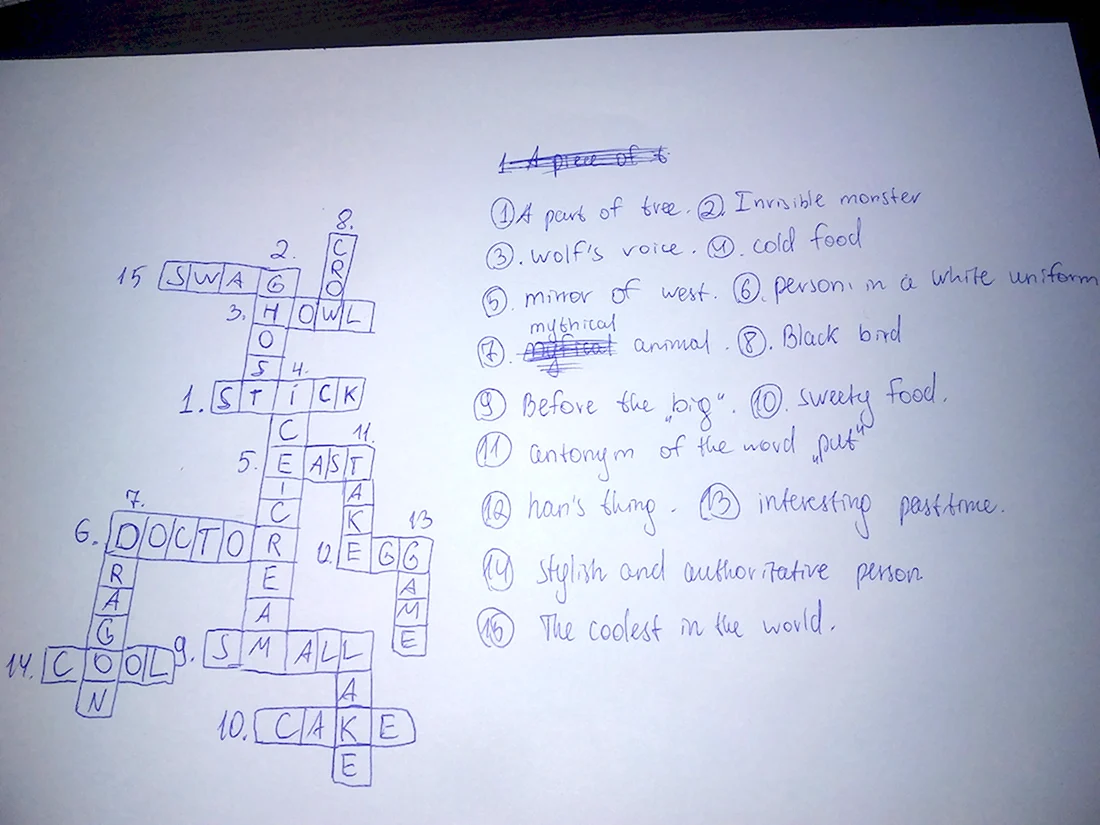 1. A piece of t
① A part of tree. ②. Invisible monster
③. wolf's voice. ④. cold food
⑤. mirror of west. ⑥. person in a white uniform
mythical
⑦. animal. ⑧. Black bird
⑨ Before the „big". ⑩. sweety food.
⑪ antonym of the word „put"
⑫ han's thing. ⑬ interesting pasttime.
⑭ stylish and authoritative person
⑮ The coolest in the world.
8.
C
R
O
2.
15 SWAG
3. HOWL
O
S
4.
1. STICK
C
11.
5. EAST
I
A
C
K
7.
13
6. DOCTOR
12. EGG
R
E
A
A
A
M
G
E
14. COOL
9. SMALL
N
A
10. CAKE
E